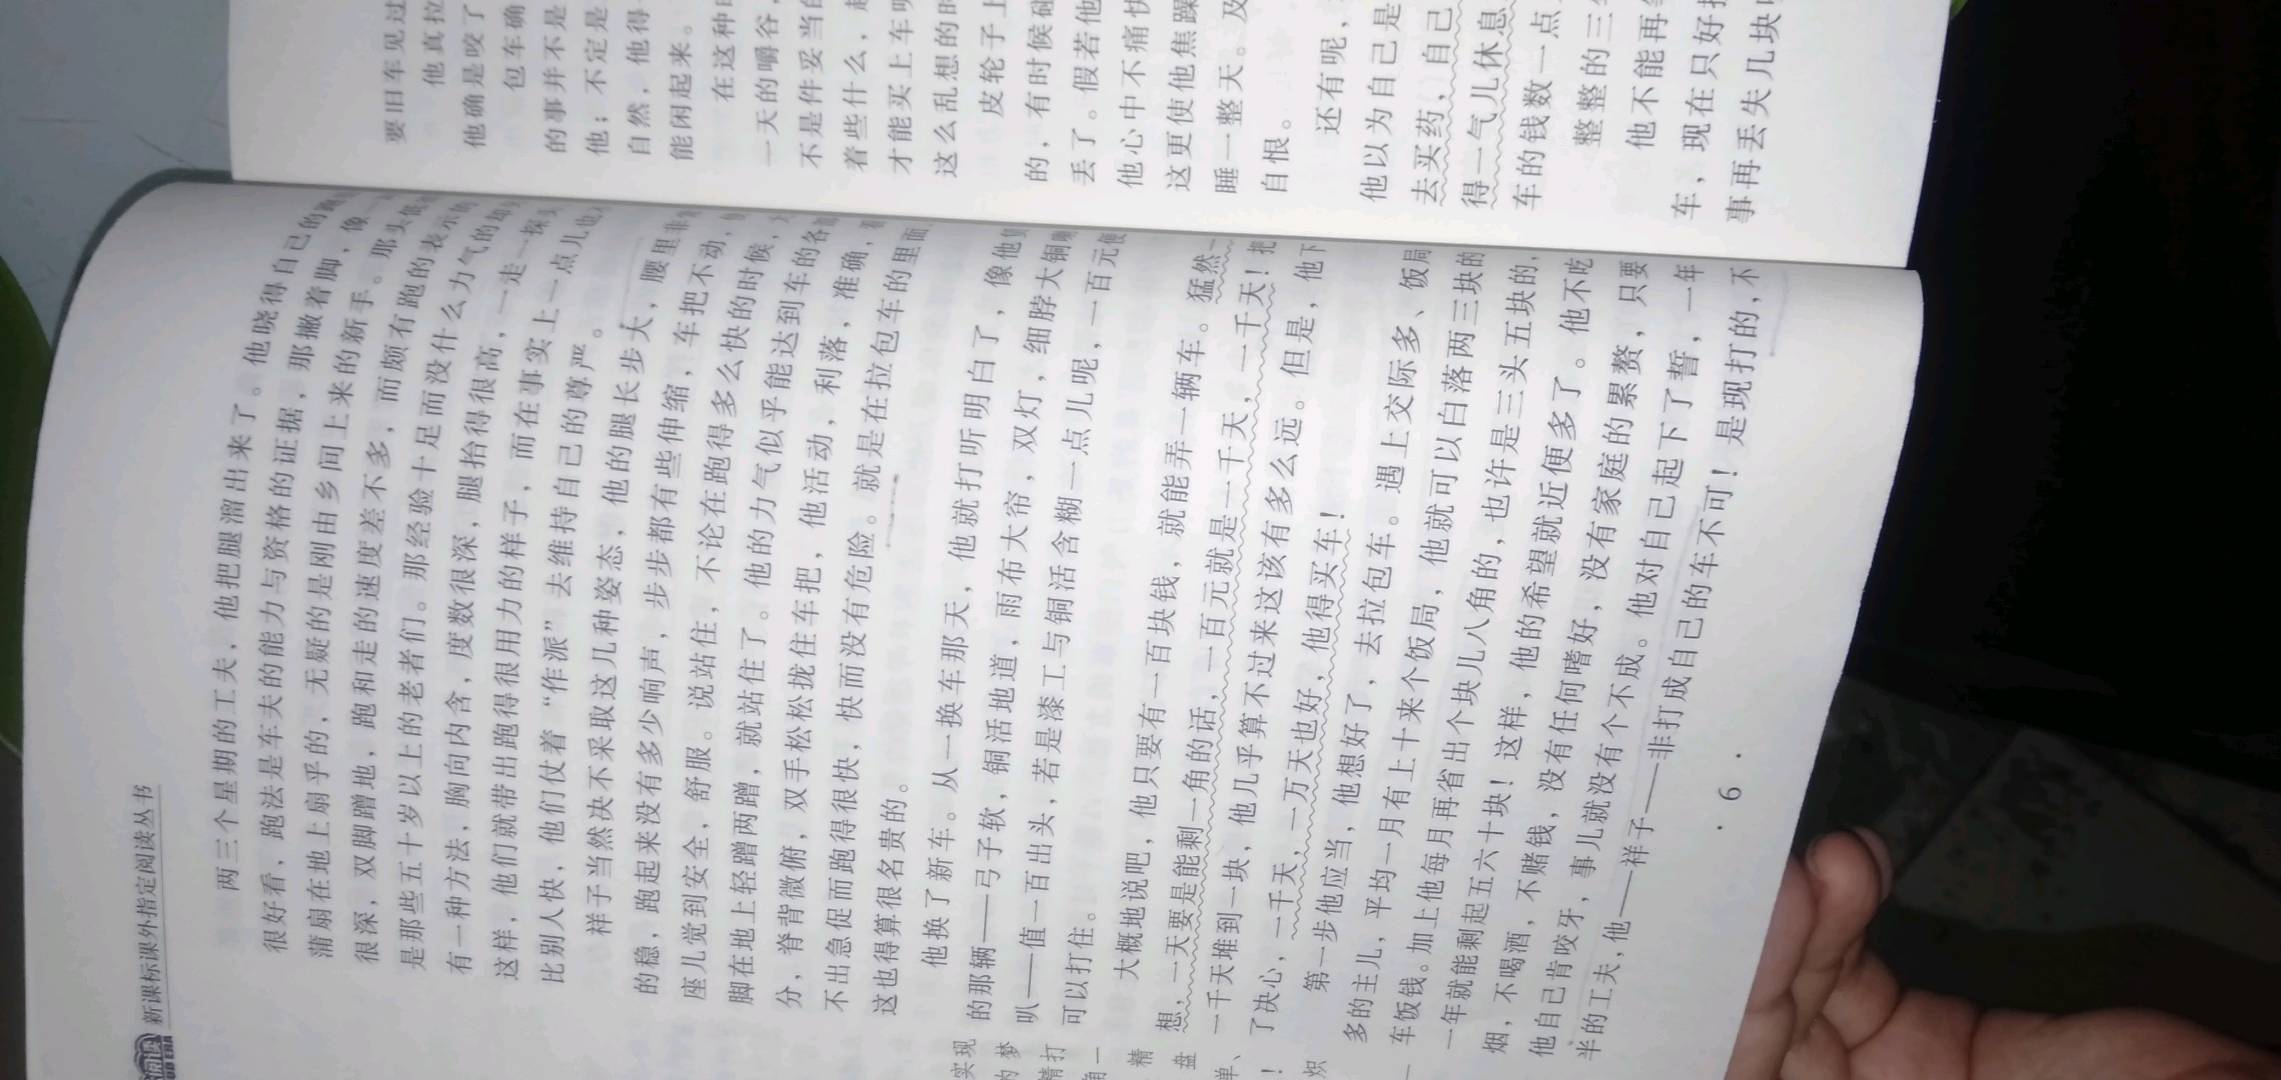 新课标课外指定阅读丛书
两三个星期的工夫，他把腿溜出来了。他晓得自己的跑
很好看、跑法是车夫的能力与资格的证据，那撇着脚，像
蒲扇在地上扇乎的，无疑的是刚由乡间上来的新手。那头低
很深，双脚蹭地，跑和走的速度差不多，而颇有跑的表示的
是那些五十岁以上的老者们。那经验十足而没什么力气的却
有一种方法，胸向内含，度数很深，腿抬得很高，一走一探
这样，他们就带出跑得很用力的样子，而在事实上一点儿也
比别人快，他们仗着“作派”去维持自己的尊严。
祥子当然决不采取这几种姿态，他的腿长步大，腰里非
的稳，跑起来没有多少响声，步步都有些伸缩，车把不动，
座儿觉到安全，舒服。说站住，不论在跑得多么快的时候，
脚在地上轻蹭两蹭，就站住了。他的力气似乎能达到车的各
分，脊背微俯，双手松松拢住车把，他活动，利落，准确，
不出急促而跑得很快，快而没有危险。就是在拉包车的里面
这也得算很名贵的。
他换了新车。从一换车那天，他就打听明白了，像他
的那辆——弓子软，铜活地道，雨布大帘，双灯，细脖大铜
叭——值一百出头，若是漆工与铜活含糊一点儿呢，一百元便
可以打住。
大概地说吧，他只要有一百块钱，就能弄一辆车。猛然一
想，一天要是能剩一角的话，一百元就是一千天，一千天！把
一千天堆到一块，他几乎算不过来这该有多么远。但是，他下
了决心，一千天，一万天也好，他得买车！
第一步他应当，他想好了，去拉包车。遇上交际多、饭局
多的主儿，平均一月有上十来个饭局，他就可以白落两三块的
车饭钱。加上他每月再省出个块儿八角的，也许是三头五块的，
一年就能剩起五六十块！这样，他的希望就近便多了。他不吃
烟，不喝酒，不赌钱，没有任何嗜好，没有家庭的累赘，只要
他自己肯咬牙，事儿就没有个不成。他对自己起下了誓，一年
半的工夫，他——祥子——非打成自己的车不可！是现打的，不
·6·
要旧车见过
他真拉
他确是咬了
包车确
的事并不是
他；不定是
自然，他得
能闲起来。
在这种
一天的嚼谷，
不是件妥当的
着些什么，
才能买上车
这么乱想的时
皮轮子上
的，有时候碰
丢了。假若他
他心中不痛快
这更使他焦躁
睡一整天。及
自恨。
还有呢，
他以为自己是
去买药，自己
得一气儿休息
车的钱数一点
整整的三
他不能再
车，现在只好
事再丢失几块
实现
的梦
精打
角一
精
盘
单、
！
炽